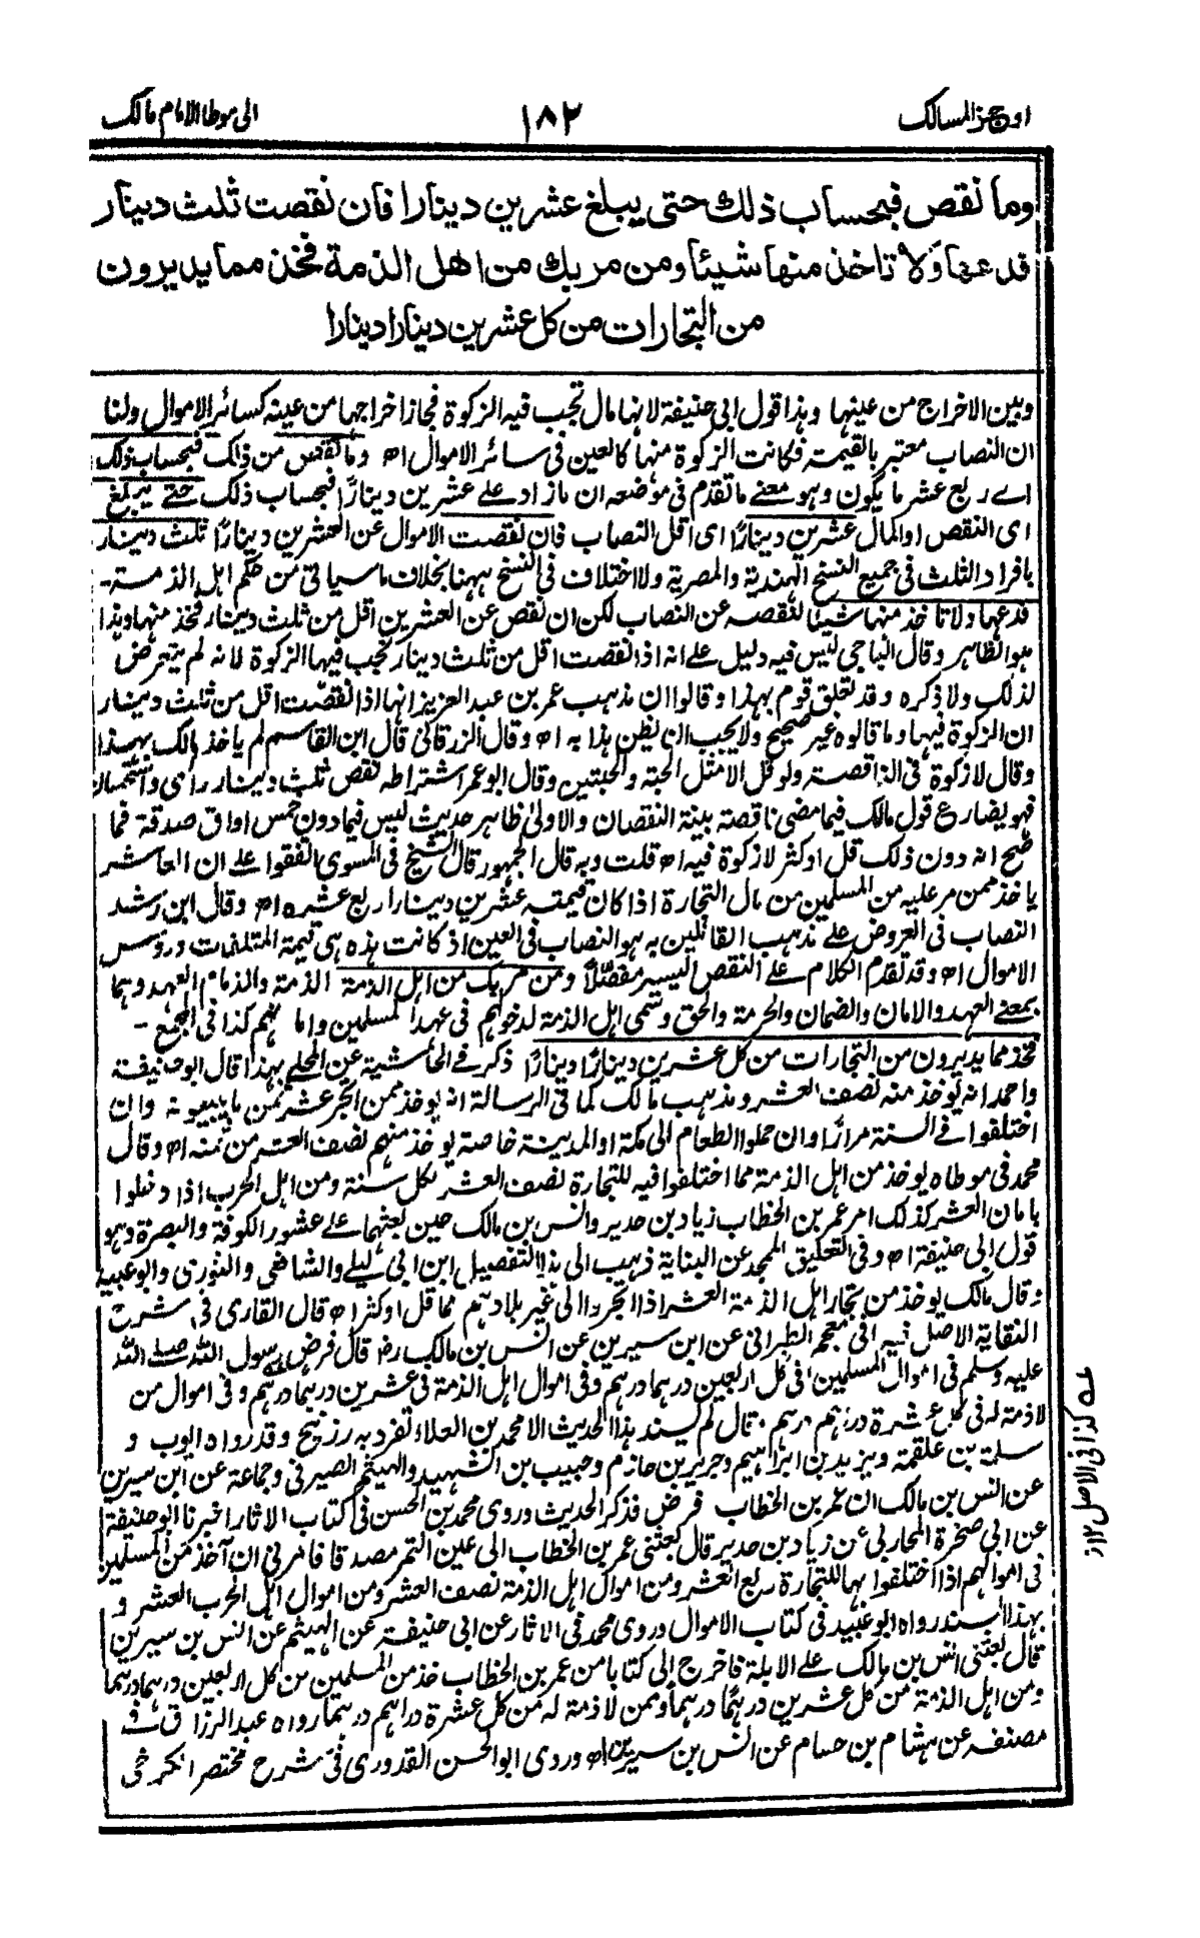 اوجز المسالك ١٨٢ الى موطا الامام مالك
وما نقص فبحساب ذلك حتى يبلغ عشرين دينارا فان نقصت ثلث دينار
فدعها ولا تاخذ منها شيئا ومن مر بك من اهل الذمة فخذ مما يديرون
من التجارات من كل عشرين دينارا دينارا
وبين الاخراج من عينها وهذا قول ابى حنيفة لانها مال تجب فيه الزكوة فجاز اخراجها من عينه كسائر الاموال ولنا
ان النصاب معتبر بالقيمة فكانت الزكوة منها كالعين فى سائر الاموال اه وما نقص من ذلك فبحساب ذلك
اے ربع عشر ما يكون وهو معنے ما تقدم فى موضعه ان ما زاد علے عشرين دينارًا فبحساب ذلك حتے يبلغ
اى النقص او المال عشرين دينارًا اى اقل النصاب فان نقصت الاموال عن العشرين دينارًا ثلث دينار
بافراد الثلث فى جميع النسخ الهندية والمصرية ولا اختلاف فى النسخ ههنا بخلاف ما سياتى من حكم اهل الذمة-
فدعها ولا تاخذ منها شيئا لنقصه عن النصاب لكن ان نقص عن العشرين اقل من ثلث دينار فخذ منها وهذا
هو الظاهر وقال الباجى ليس فيه دليل علے انه اذا نقصت اقل من ثلث دينار تجب فيها الزكوة لانه لم يتعرض
لذلك ولا ذكره وقد تعلق قوم بهذا وقالوا ان مذهب عمر بن عبد العزيز انها اذا نقصت اقل من ثلث دينار
ان الزكوة فيها وما قالوه غير صحيح ولا يجب ان يظن هذا به اه وقال الزرقانى قال ابن القاسم لم ياخذ مالك بهذا
وقال لا زكوة فى الناقصة ولو قل الا مثل الحبة والحبتين وقال ابو عمر اشتراطه نقص ثلث دينار راى واستحسان
فهو يضارع قول مالك فيما مضى ناقصة بينة النقصان والاولى ظاهر حديث ليس فيما دون خمس اواق صدقة فما
صح انه دون ذلك قل او كثر لا زكوة فيه اه قلت وبه قال الجمهور قال الشيخ فى المسوى اتفقوا علے ان العاشر
ياخذ ممن مر عليه من المسلمين من مال التجارة اذا كان قيمته عشرين دينارا ربع عشره اه وقال ابن رشد
النصاب فى العروض علے مذهب القائلين به هو النصاب فى العين اذ كانت هذه هى قيمة المتلفات ورؤس
الاموال اه وقد تقدم الكلام علے النقص اليسير مفصلًا ومن مر بك من اهل الذمة الذمة والذمام العهد وهما
بمعنے العهد والامان والضمان والحرمة والحق وسمى اهل الذمة لدخولهم فى عهد المسلمين وامانهم كذا فى المجمع -
فخذ مما يديرون من التجارات من كل عشرين دينارًا دينارًا ذكر فے الحاشية عن المحلے بهذا قال ابو حنيفة
واحمد انه يوخذ منه نصف العشر ومذهب مالك كما فى الرسالة انه يوخذ ممن اتجر عشر ثمن ما يبيعونه وان
اختلفوا فے السنة مرارًا وان حملوا الطعام الى مكة او المدينة خاصة يوخذ منهم نصف العشر من ثمنه اه وقال
محمد فى موطاه يوخذ من اهل الذمة مما اختلفوا فيه للتجارة نصف العشر كل سنة ومن اهل الحرب اذا دخلوا
بامان العشر كذلك امر عمر بن الخطاب زياد بن حدير وانس بن مالك حين بعثهما علے عشور الكوفة والبصرة وهو
قول ابى حنيفة اه وفى التعليق الممجد عن البناية ذهب الى هذا التفصيل ابن ابى ليلے والشافعى والثورى وابو عبيد
وقال مالك يوخذ من تجار اهل الذمة العشر اذا اتجروا الى غير بلادهم مما قل او كثر اه قال القارى فى شرح
النقاية الاصل فيه ما فى معجم الطبرانى عن ابن سيرين عن انس بن مالك رض قال فرض رسول الله صلے الله
عليه وسلم فى اموال المسلمين فى كل اربعين درهما درهم وفى اموال اهل الذمة فى عشرين درهما درهم وفى اموال من
لا ذمة له فى كل عشرة دراهم درهم . قال لم يسند هذا الحديث الا محمد بن العلاء تفرد به زنيج وقد رواه ايوب و
سلمة بن علقمة ويزيد بن ابراهيم وجرير بن حازم وحبيب بن الشهيد والهيثم الصيرفى وجماعة عن ابن سيرين
عن انس بن مالك ان عمر بن الخطاب فرض فذكر الحديث وروى محمد بن الحسن فى كتاب الاثار اخبرنا ابو حنيفة
عن ابى صخرة المحاربى عن زياد بن حدير قال بعثنى عمر بن الخطاب الى عين التمر مصدقا فامرنى ان آخذ من المسلمين
فى اموالهم اذا اختلفوا بها للتجارة ربع العشر ومن اموال اهل الذمة نصف العشر ومن اموال اهل الحرب العشر و
بهذا السند رواه ابو عبيد فى كتاب الاموال وروى محمد فى الاثار عن ابى حنيفة عن الهيثم عن انس بن سيرين
قال بعثنى انس بن مالك علے الابلة فاخرج الى كتابا من عمر بن الخطاب خذ من المسلمين من كل اربعين درهما درهما
ومن اهل الذمة من كل عشرين درهمًا درهما وممن لا ذمة له من كل عشرة دراهم درهما رواه عبد الرزاق فے
مصنفه عن هشام بن حسام عن انس بن سيرين اه وروى ابو الحسن القدورى فى شرح مختصر الكرخى
عه كذا فى الاصل ١٢ ز